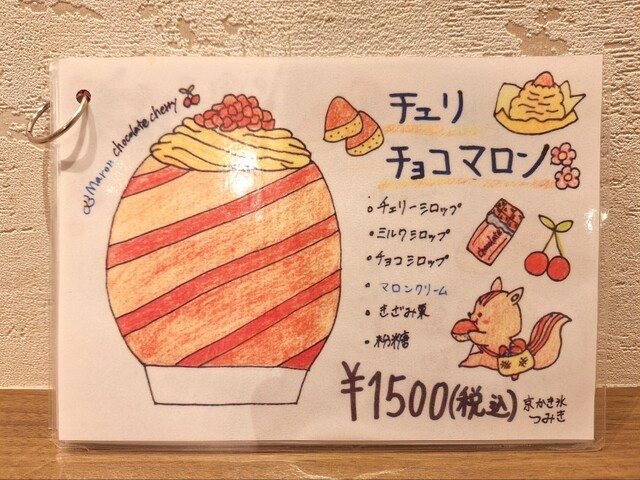 Maron chocolate cherry
チェリ
チョコマロン
・チェリーシロップ
・ミルクシロップ
・チョコシロップ
・マロンクリーム
・きざみ栗
・粉糖
chocolate
¥1500(税込)
京かき氷
つみき